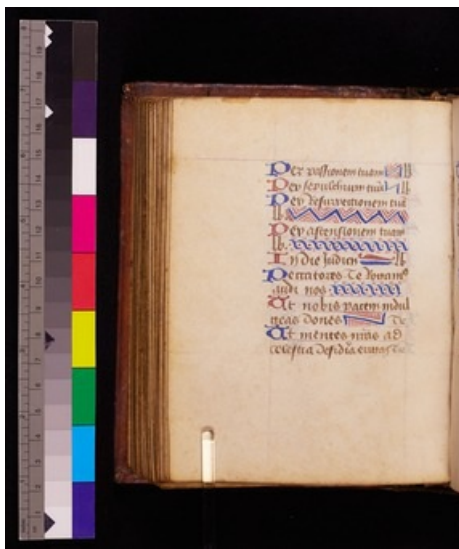 Per passionem tuam lb
Per sepulchrum tuū lb
Per resurrectionem tuā
lb.
Per ascensionem tuam
lb.
In die Judicii lb
Peccatores Te
audi nos
Ut nobis pacem indul
geas dones Te
Ut mentes nr̄as ad
celestia desideria Te